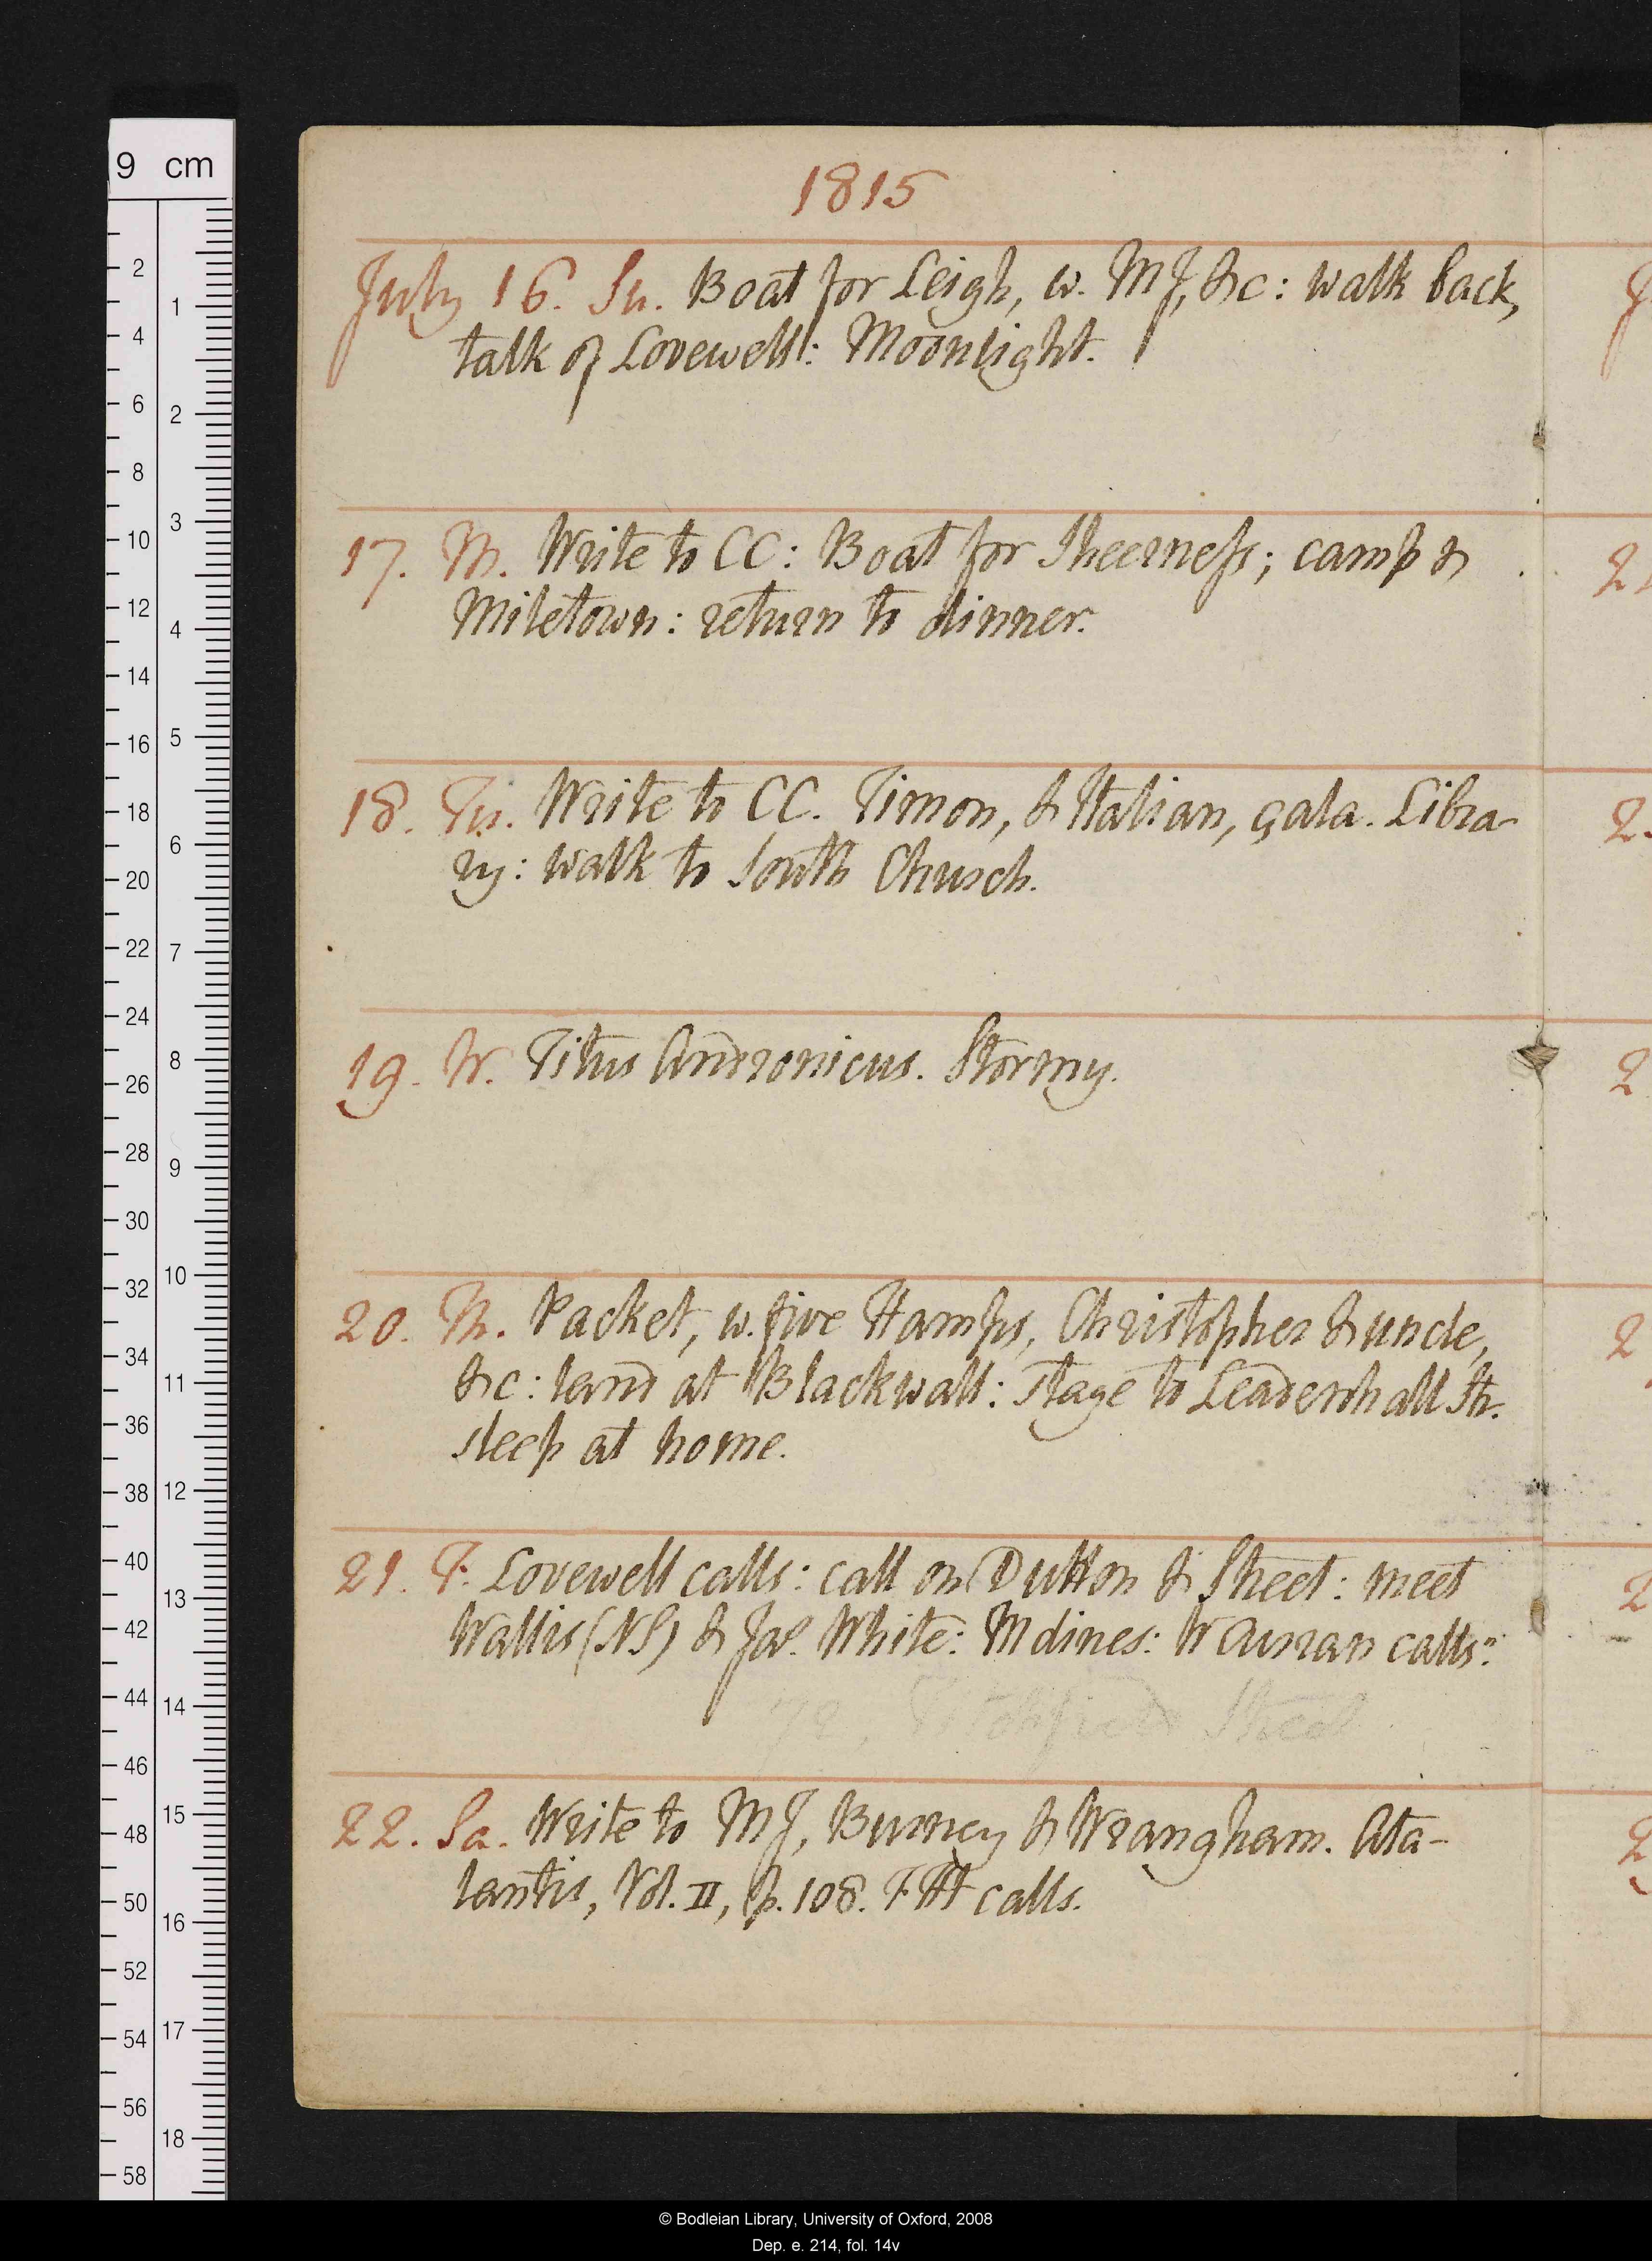 9 cm
1815
July 16. Su. Boat for Leigh, w. MJ, &c: walk back,
talk of Lovewell: Moonlight.
17. M. Write to CC: Boat for Sheerness; camp &
Miletown: return to dinner.
18. Tu. Write to CC. Timon, & Italian, çala. Libra-
ry: walk to South Church.
19. W. Titus Andronicus. Stormy.
20. Th. Packet, w. five Hamps, Christopher & uncle,
&c: land at Blackwall: stage to Leadenhall St.
sleep at home.
21. F. Lovewell calls: call on Dutton & Street: meet
Wallis (NS) & Jas. White: M dines: W Curran calls:
72, Titchfield Street
22. Sa. Write to MJ, Burney & Wrangham. Ata-
lantis, Vol. II, p. 108. FH calls.
© Bodleian Library, University of Oxford, 2008
Dep. e. 214, fol. 14v